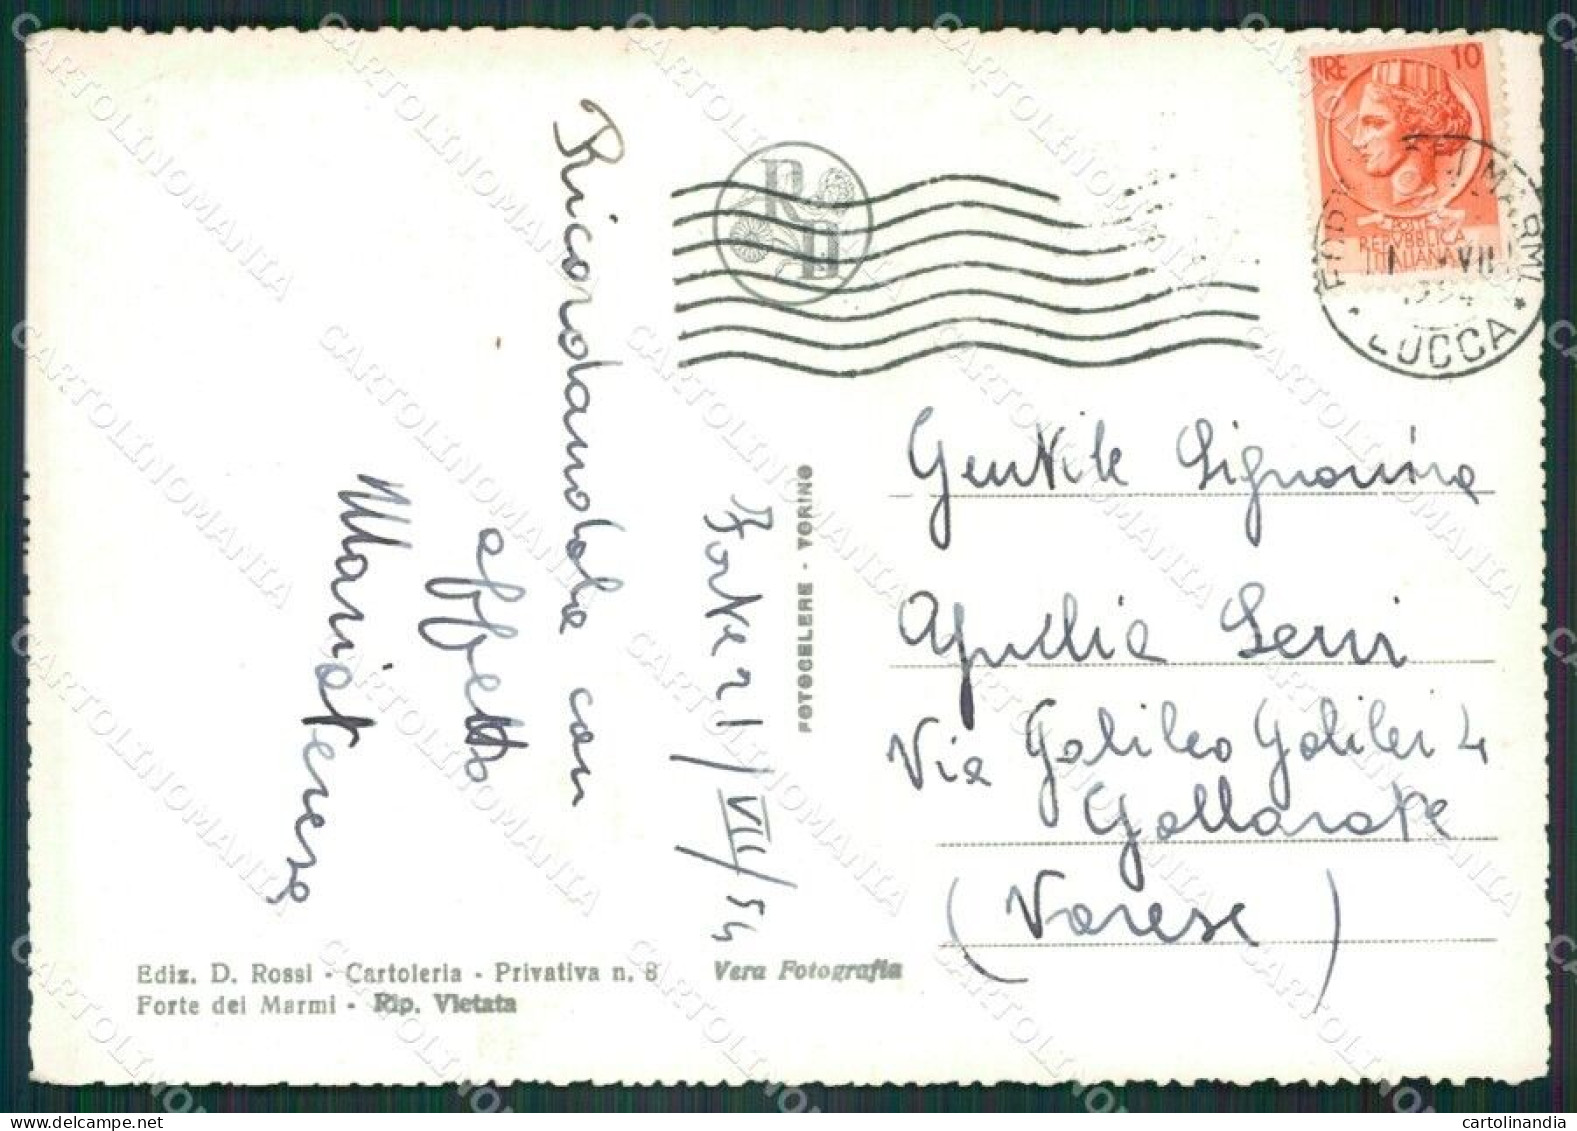 LIRE 10
POSTE
REPVBBLICA
ITALIANA
FORTE DEI MARMI
VII
1954
* LUCCA *
R D
Ricordandola con
affetto
Mariateresa
Forte 21/VII/54
FOTOCELERE - TORINO
Gentile Signorina
Via Galileo Galilei 4
Gallarate
(Varese)
Ediz. D. Rossi - Cartoleria - Privativa n. 8
Forte dei Marmi - Rip. Vietata
Vera Fotografia
CARTOLINOMANIA
cartolinandia